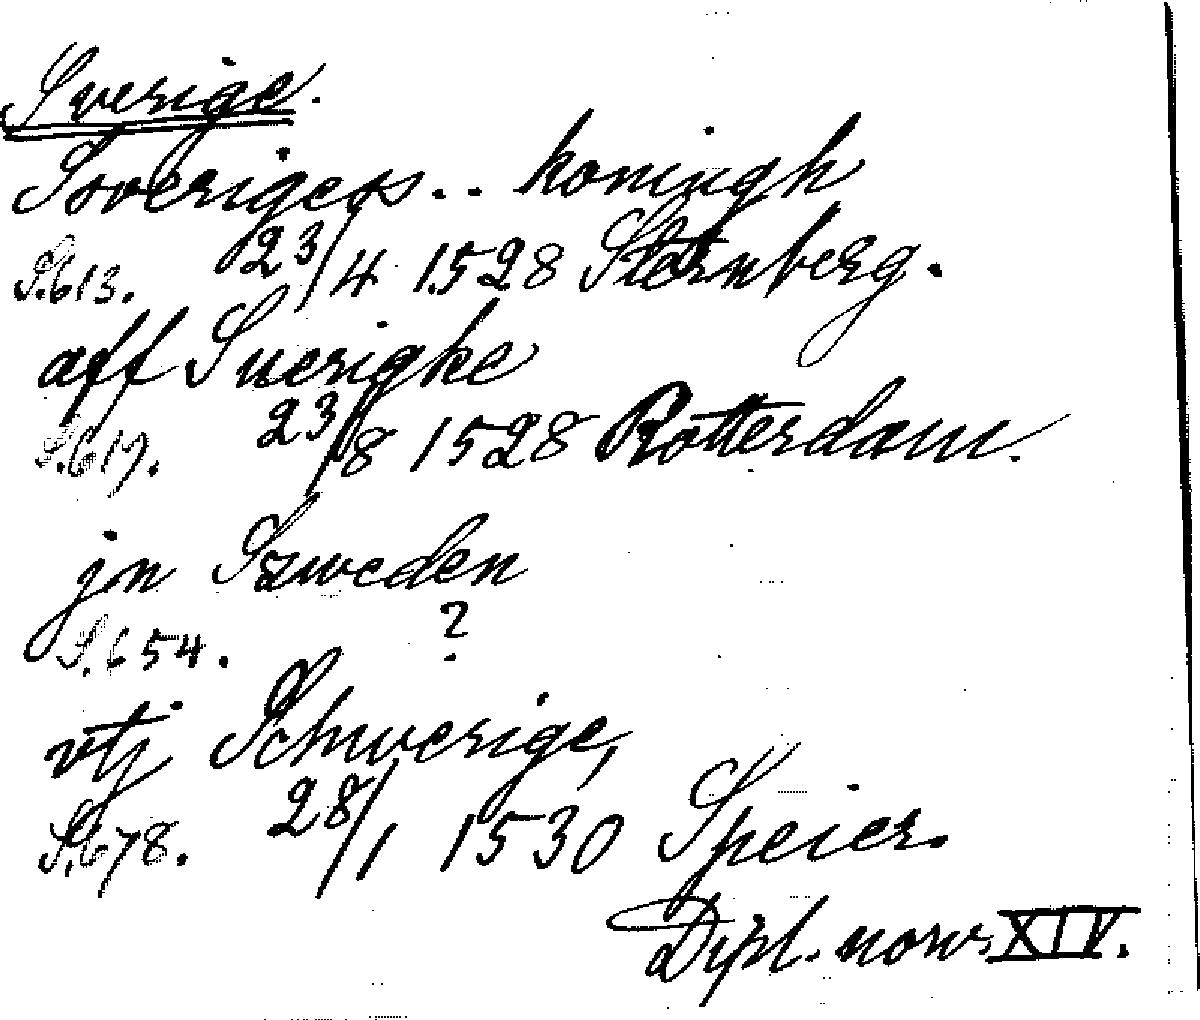 Sverige.
Sverigess.. koningh
S.613. 23/4 1528 Sternberg.
aff Suerigke
S.617. 23/8 1528 Rotterdam.
jn Szweden
S.654. ?
vtj Schwerige,
S.678. 28/1 1530 Speier.
Dipl. norv. XIV.